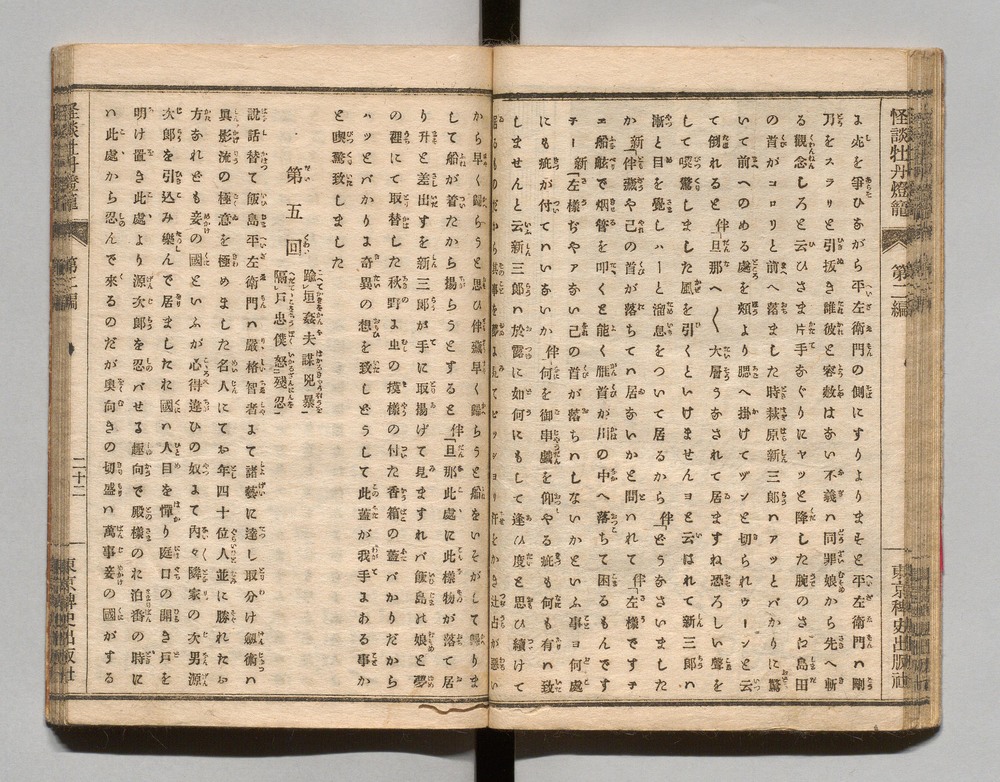 怪談牡丹燈籠
第二編
東京稗史出版社
よ死を爭ひながら平左衛門の側にすりよりますと平左衛門ハ剛
刀をスラリと引拔き誰彼と容敷はない不義ハ同罪娘から先へ斬
る觀念しろと云ひさま片手なぐりにヤッと降した腕のさえ島田
の首がコロリと前へ落ました時萩原新三郎ハアッとバかりに驚
いて前へのめる處を頬より腮へ掛けてヅンと切られウーンと云
て倒れると 伴「旦那へ〱大層うなされて居ますね恐ろしい聲を
して喫驚しました風を引くといけませんヨと云はれて新三郎ハ
漸と目を覺しハーと溜息をついて居るから 伴「どうなさいました
か 新「伴藏や己の首が落ちてハ居ないかと問ハれて 伴「左樣ですチ
エ船舷で烟管を叩くと能く雁首が川の中へ落ちて困るもんです
チー 新「左樣ぢやアない己の首が落ちハしないかといふ事ヨ何處
にも疵が付てハいないか 伴「何を御串戯を仰やる疵も何も有ハ致
しませんと云新三郎ハ於露に如何にもして逢ひ度と思ひ續けて
居るものだから其事を夢に見てビッショリ汗をかき辻占が惡い
から早く歸らうと思ひ伴藏早く歸らうと船をいそがして歸りま
して船が着たから揚らうとすると 伴「旦那此處に此樣物が落て居
り升と差出すを新三郎が手に取揚げて見ますれバ飯島の娘と夢
の裡にて取替した秋野よ虫の摸樣の付た香箱の蓋バかりだから
ハッとバかりよ奇異の想を致しどうして此蓋が我手よある事か
と喫驚致しました
第五回
踰垣姦夫謀兇暴
隔戸忠僕怒殘忍
說話替て飯島平左衛門ハ嚴格智者よて諸藝に達し取分け劔術ハ
眞影流の極意を極めました名人にてお年四十位人並に勝れたお
方なれども妾の國といふが心得違ひの奴よて内々隣家の次男源
次郎を引込み樂んで居ましたお國ハ人目を憚り庭口の開き戸を
明け置き此處より源次郎を忍バせる趣向で殿樣のお泊番の時に
ハ此處から忍んで來るのだが奥向きの切盛ハ萬事妾の國がする
怪談牡丹燈籠
第二編
二十二
東京稗史出版社